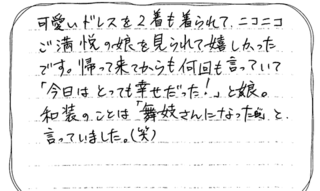 可愛いドレスを2着も着られて、ニコニコ
ご満悦の娘を見られて嬉しかった
です。帰って来てからも何回も言っていて
「今日はとっても幸せだった!」と娘。
和装のことは「舞妓さんになった」と
言っていました。(笑)